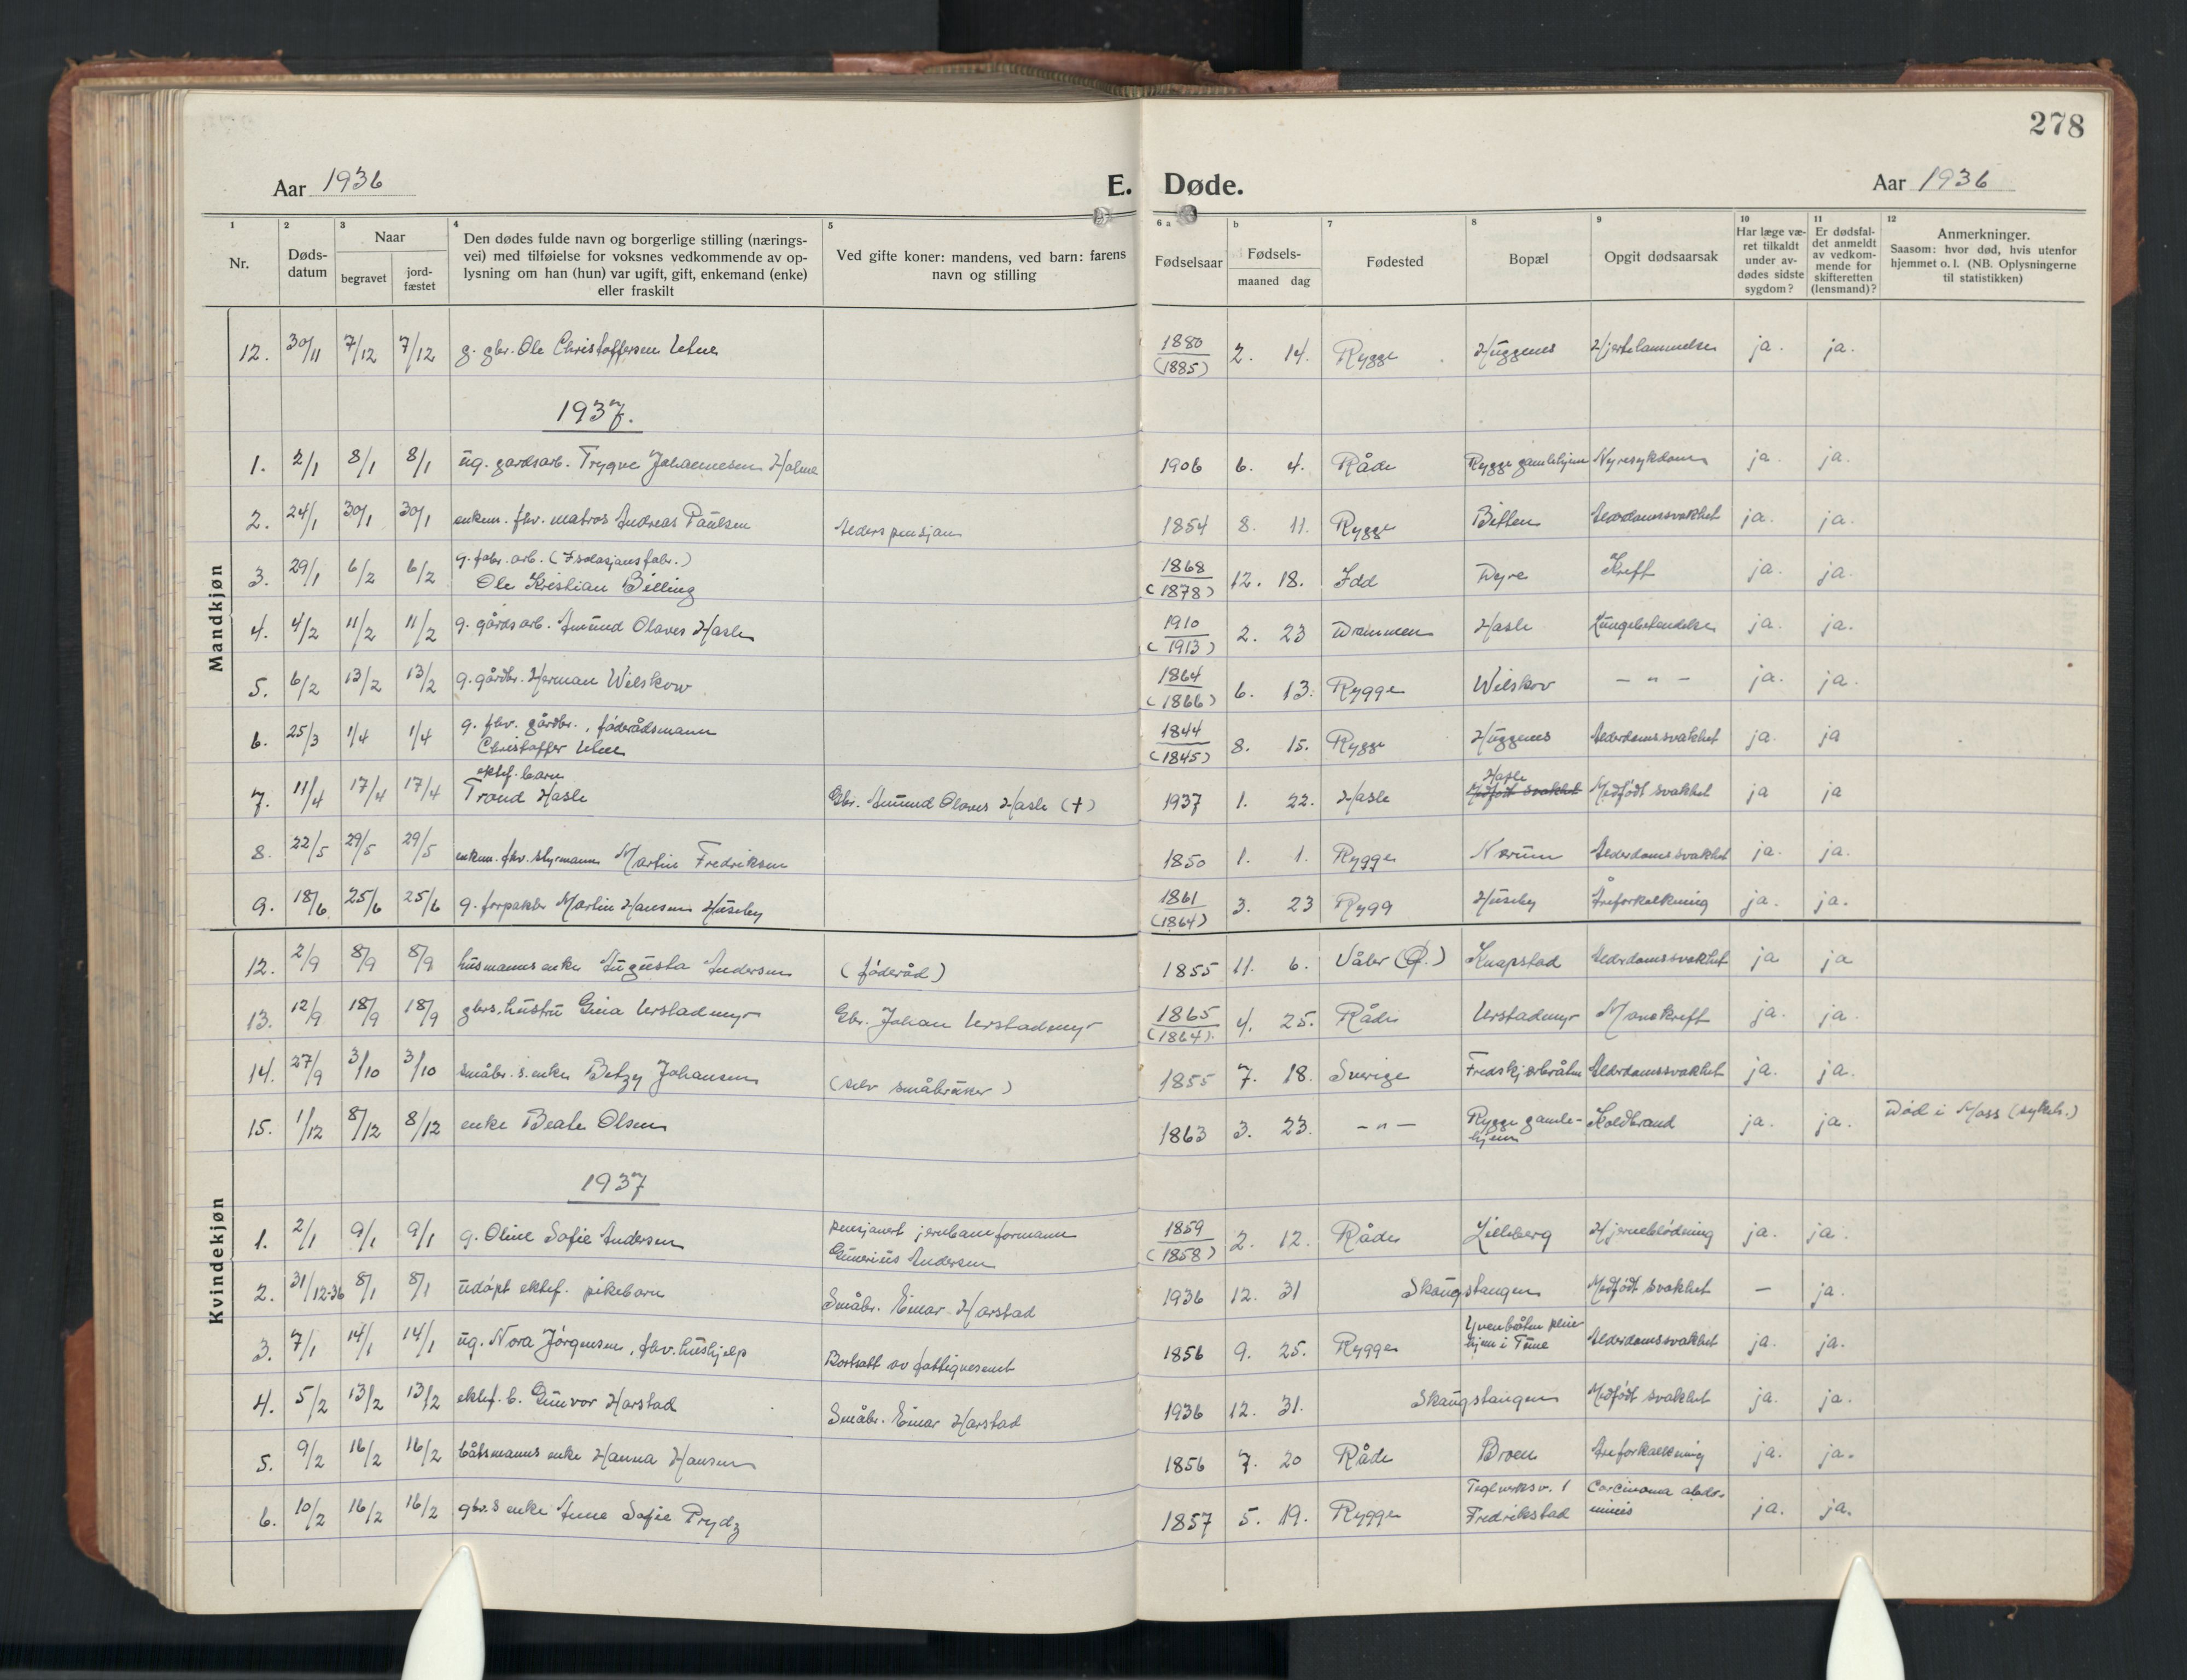 278
Aar 1936 E. Døde. Aar 1936
1 2 3 4 5 6 a b 7 8 9 10 11 12
Nr. Døds-datum Naar begravet jord-fæstet Den dødes fulde navn og borgerlige stilling (nærings-vei) med tilføielse for voksnes vedkommende av op-lysning om han (hun) var ugift, gift, enkemand (enke) eller fraskilt Ved gifte koner: mandens, ved barn: farens navn og stilling Fødselsaar Fødsels-maaned dag Fødested Bopæl Opgit dødsaarsak Har læge væ-ret tilkaldt under av-dødes sidste sygdom? Er dødsfal-det anmeldt av vedkom-mende for skifteretten (lensmand)? Anmerkninger. Saasom: hvor død, hvis utenfor hjemmet o. l. (NB. Oplysningerne til statistikken)
Mandkjøn
12. 30/11 7/12 7/12 g. gbr. Ole Christoffersen 1880 (1885) 2. 14. Rygge Huggenes Hjertelammelse ja. ja.
1937.
1. 2/1 8/1 8/1 ug. gardsarb. Trygve Johannesen Holme 1906 6. 4. Råde Rygge gamlehjem Nyresykdom ja ja.
2. 24/1 30/1 30/1 enkem. fhv. matros Andreas Paulsen Alderspensjon 1854 8. 11. Rygge Botten Alderdomssvakhet ja. ja.
3. 29/1 6/2 6/2 g. fabr. arb. (Isolasjonsfabr.) Ole Kristian Billing 1868 (1878) 12. 18. Idd Dyre Kreft ja. ja.
4. 4/2 11/2 11/2 g. gårdsarb. Amund Olaves Hasle 1910 (1913) 2. 23 Drammen Hasle Lungebetendelse ja. ja.
5. 6/2 13/2 13/2 g. gårdbr. Herman Wilskow 1864 (1866) 6. 13. Rygge Wilskov – " – ja. ja.
6. 25/3 1/4 1/4 g. fhv. gårdbr., føderådsmann Christoffer 1844 (1845) 8. 15. Rygge Huggenes Alderdomssvakhet ja. ja
7. 11/4 17/4 17/4 ektef. barn Trond Hasle Gbr. Amund Olaves Hasle (†) 1937 1. 22. Hasle Hasle Medfødt svakhet Medfødt svakhet ja ja
8. 22/5 29/5 29/5 enkem. fhv. styrmann Martin Fredriksen 1850 1. 1. Rygge Nærum Alderdomssvakhet ja. ja.
9. 18/6 25/6 25/6 g. forpakter Martin Hansen Huseby 1861 (1864) 3. 23 Rygg Huseby Åreforkalkning ja. ja.
Kvindekjøn
12. 2/9 8/9 8/9 husmanns enke Augusta Andersen (føderåd) 1855 11. 6. Våler (Ø.) Knapstad Alderdomssvakhet ja ja
13. 12/9 18/9 18/9 gbrs. hustru Gina Uerstadmyr Gbr. Johan Uerstadmyr 1865 (1864). 4. 25. Råde Uerstadmyr Mavekreft ja. ja.
14. 27/9 3/10 3/10 småbr. s. enke Betzy Johansen (selv småbruker) 1855 7. 18. Sverige Alderdomssvakhet ja. ja.
15. 1/12 8/12 8/12 enke Beate Olsen 1863 3. 23. – " – Rygge gamle-hjem Koldbrand ja. ja. Død i Moss (sykeh.)
1937
1. 2/1 9/1 9/1 g. Oline Sofie Andersen pensjonert jernbaneformann Gunerius Andersen 1859 (1858) 2. 12. Råde Lilleberg Hjerneblødning ja. ja.
2. 31/12-36 8/1 8/1 udøpt ektef. pikebarn Småbr. Einar Harstad 1936 12. 31 Skaugstangen Medfødt svakhet – ja.
3. 7/1 14/1 14/1 ug. Nora Jørgensen, fhv. hushjelp Bortsatt av fattigvesenet 1856 9. 25. Rygge pleie hjem i Tune Alderdomssvakhet ja. ja.
4. 5/2 13/2 13/2 ektef. b. Gunvor Harstad Småbr. Einar Harstad 1936 12. 31. Skaugstangen Medfødt svakhet ja. ja.
5. 9/2 16/2 16/2 båtsmanns enke Hanna Hansen 1856 7. 20 Råde Broen Åreforkalkning ja. ja.
6. 10/2 16/2 16/2 gbr.s enke Anne Sofie Prydz 1857 5. 19. Rygge Teglverksv. 1 Fredrikstad Carcinoma abdo-minis ja. ja.